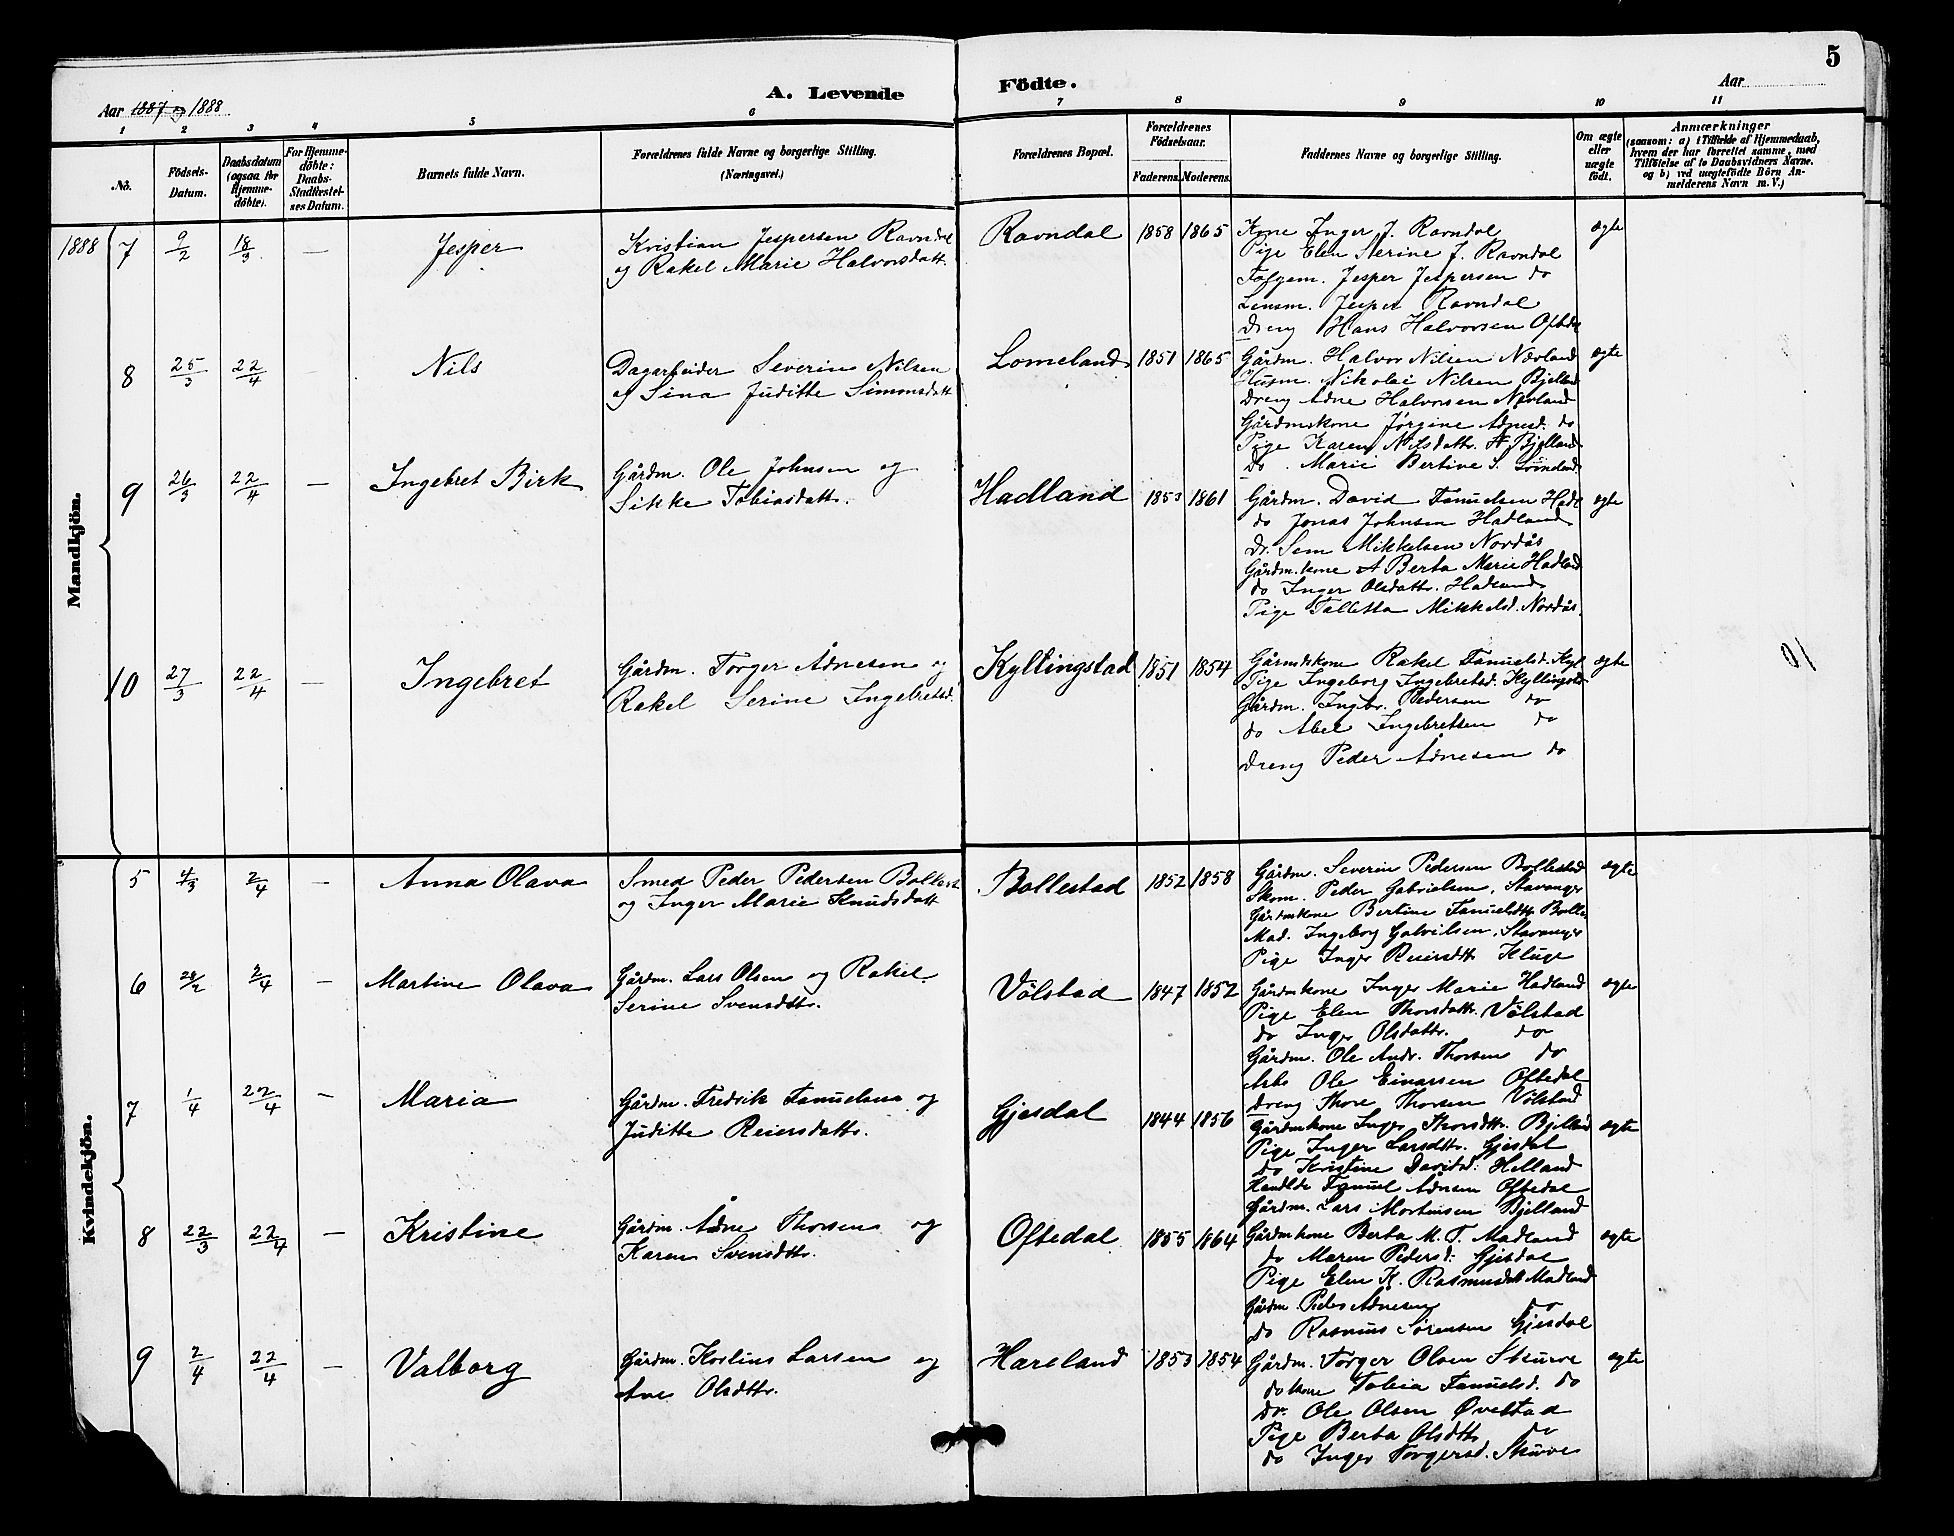 5
Aar 1887 og 1888
A. Levende
Födte.
Aar
1 2 3 4 5 6 7 8 9 10 11
No.
Födsels-Datum.
Daabsdatum (ogsaa for Hjemme-döbte).
For Hjemme-döbte: Daabs-Stadfæstel-ses Datum.
Barnets fulde Navn.
Forældrenes fulde Navne og borgerlige Stilling. (Næringsvei.)
Forældrenes Bopæl.
Forældrenes Födselsaar.
Faderens. Moderens.
Faddernes Navne og borgerlige Stilling.
Om ægte eller uægte födt.
Anmærkninger
(saasom: a) i Tilfælde af Hjemmedaab,
hvem der har forrettet samme, med
Tilföielse af to Daabsvidners Navne.
og b) ved uægtefödte Börn An-
melderens Navn m. V.)
Mandkjön.
1888 7 9/2 18/3 — Jesper
Kristian Jespersen Ravndal
og Rakel Marie Halvorsdatt.
Ravndal 1858 1865
Kone Inger J. Ravndal
Pige Elen Serine J. Ravndal
Jesper Jespersen do
Lensm. Jesper Ravndal
Dreng Hans Halvorsen Ofteda
ægte
8 25/3 22/4 Nils
Dagarbeider Severin Nilsen
og Sina Juditte Simonsdatt
Lomeland 1851 1865
Gårdm. Halvor Nilsen Nævland
Husm. Nikolai Nilsen Bjelland
Dreng Adne Halvorsen Nævland
Gårdmskone Jørgine Adnesd. do
Pige Karen Nilsdatt. Bjelland
do. Marie Bertine S.
ægte
9 26/3 22/4 — Ingebret Birk
Gårdm. Ole Johnsen og
Sikke Tobiasdatt.
Hadland 1853 1861
Gårdm. David Tanuelsen Hadl
do Jonas Johnsen Hadland
Dr. Sem Mikkelsen Nordås
Gårdm.kone A Berta Marie Hadland
do Inger Olsdattr. Hadland
Pige Talletta Mikkelsd. Nordås.
ægte
10 27/3 22/4 — Ingebret
Gårdm. Torger Ådnesen og
Rakel Serine Ingebretsd.
Kyllingstad 1851 1854
Gårmdskone Rakel Tanuelsd. Kyl
Pige Ingeborg Ingebretsd. Kyllingsta
Gårdm. Ingbr. Pedersen do
do Abel Ingebretsen do
Dreng Peder Ådnesen do
ægte
10
Kvindekjön.
5 4/3 2/4 — Anna Olava
Smed Peder Pedersen Bollest
og Inger Marie Knudsdatt
Bollestad 1852 1858
Gårdm. Severin Pedersen Bollestad
Skom. Peder Gabrielsen, Stavanger
Gårdmkone Bertine Tanuelsdttr. Bolle.
Mad. Ingeborg Gabrielsen, Stavanger
Pige Inger Reiersdtt. Kluge
ægte
6 28/2 2/4 — Martine Olava
Gårdm. Lars Olsen og Rakel
Serine Svensdttr.
Völstad 1847 1852
Gårdmkone Inger Marie Hadland
Pige Elen Thorsdattr. Völstad
do Inger Olsdattr. do
Gårdm. Ole Andr. Thorsen do
Arb. Ole Einarsen Oftedal
Dreng Thore Thorsen Völstad
ægte
7 1/4 22/4 — Maria
Gårdm. Fredrik Tanuelsen og
Juditte Reiersdattr.
Gjesdal 1844 1856
Gårdmkone Inger Thorsdttr. Bjelland
Pige Inger Larsdttr. Gjesdal
do Kristine Davidsd. Helland
Handlde Tanuel Adnsen Oftedal
Gårdm. Lars Mortensen Bjelland
ægte
8 22/3 22/4 — Kristine
Gårdm. Ådne Thorsen og
Karen Svensdttr.
Oftedal 1855 1864
Gårdmkone Berta M. T. Madland
do Maren Pedersd. Gjesdal
Pige Elen K. Rasmusdtt Madland
Gårdm. Peder Adnesen do
do Rasmus Sørensen Gjesdal
ægte
9 2/4 22/4 — Valborg
Gårdm. Larsen og
Olsdttr.
Hareland 1853 1854
Gårdm. Torger Olsen Skurve
do kone Tobia Tanuelsd. do
Dr. Ole Olsen Øvestad
Pige Berta Olsdttr. do
do Inger Torgersd. Skurve
ægte